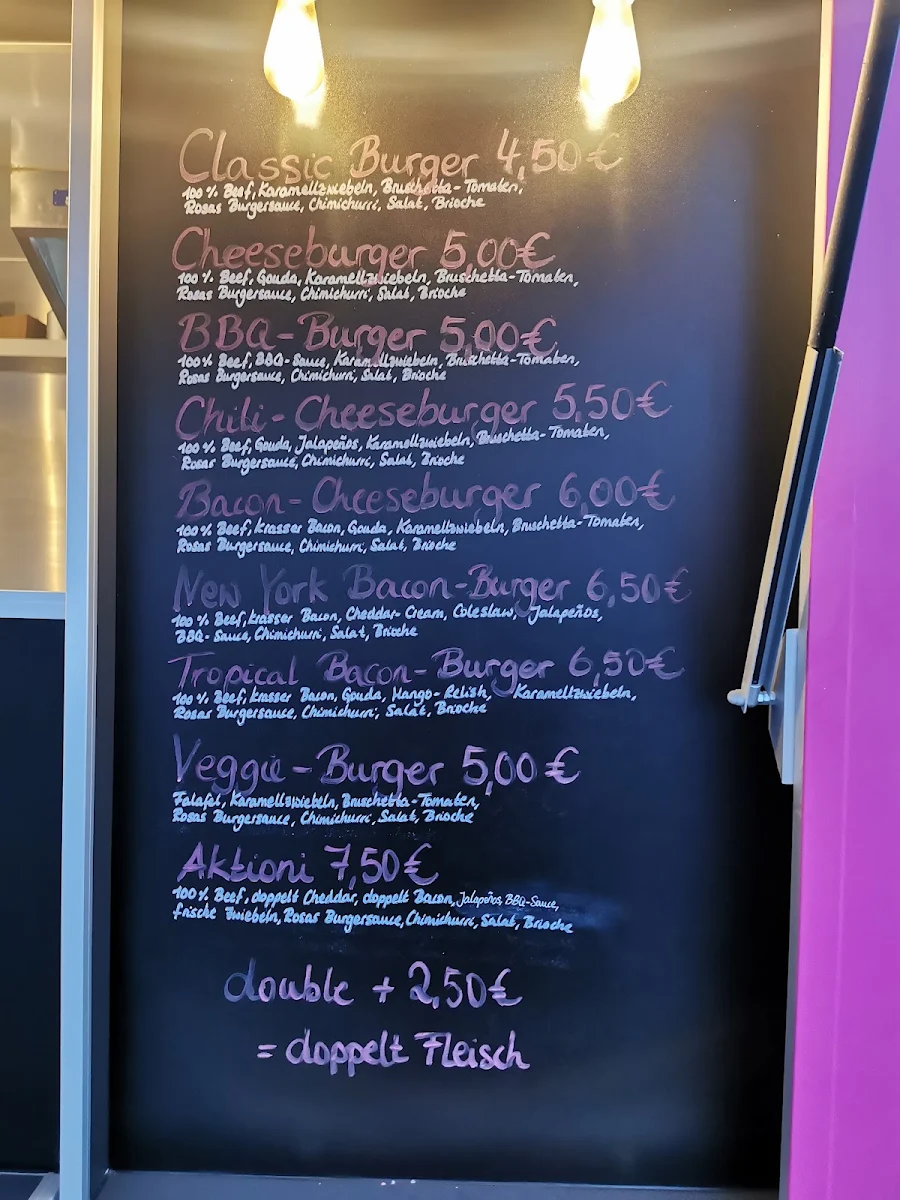 Classic Burger 4,50€
100% Beef, Karamellzwiebeln, Bruschetta-Tomaten,
Rosas Burgersauce, Chimichurri, Salat, Brioche
Cheeseburger 5,00€
100% Beef, Gouda, Karamellzwiebeln, Bruschetta-Tomaten,
Rosas Burgersauce, Chimichurri, Salat, Brioche
BBQ-Burger 5,00€
100% Beef, BBQ-Sauce, Karamellzwiebeln, Bruschetta-Tomaten,
Rosas Burgersauce, Chimichurri, Salat, Brioche
Chili-Cheeseburger 5,50€
100% Beef, Gouda, Jalapeños, Karamellzwiebeln, Bruschetta-Tomaten,
Rosas Burgersauce, Chimichurri, Salat, Brioche
Bacon-Cheeseburger 6,00€
100% Beef, krasser Bacon, Gouda, Karamellzwiebeln, Bruschetta-Tomaten,
Rosas Burgersauce, Chimichurri, Salat, Brioche
New York Bacon-Burger 6,50€
100% Beef, krasser Bacon, Cheddar-Cream, Coleslaw, Jalapeños,
BBQ-Sauce, Chimichurri, Salat, Brioche
Tropical Bacon-Burger 6,50€
100% Beef, krasser Bacon, Gouda, Mango-Relish, Karamellzwiebeln,
Rosas Burgersauce, Chimichurri, Salat, Brioche
Veggie-Burger 5,00€
Falafel, Karamellzwiebeln, Bruschetta-Tomaten,
Rosas Burgersauce, Chimichurri, Salat, Brioche
Aktioni 7,50€
100% Beef, doppelt Cheddar, doppelt Bacon, Jalapeños, BBQ-Sauce,
frische Zwiebeln, Rosas Burgersauce, Chimichurri, Salat, Brioche
double + 2,50€
= doppelt Fleisch